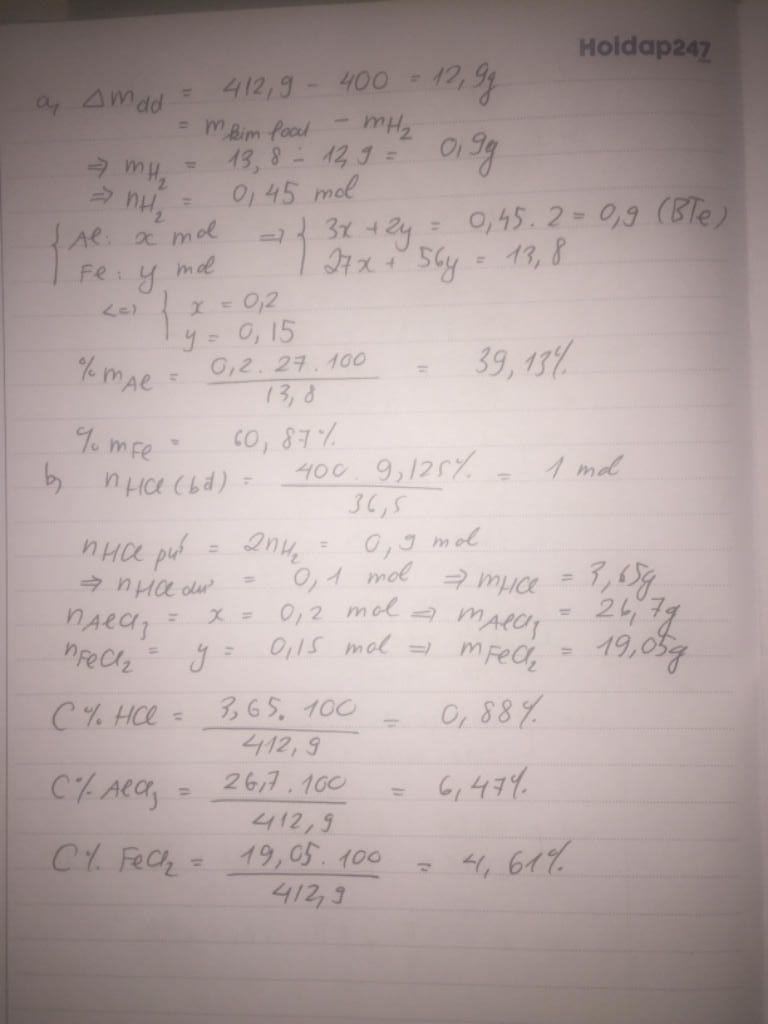 Hoidap247
a, Δmdd = 412,9 - 400 = 12,9g
= mkim loại - mH2
⇒ mH2 = 13,8 - 12,9 = 0,9g
⇒ nH2 = 0,45 mol
{ Al: x mol ⇒ { 3x + 2y = 0,45.2 = 0,9 (BTe)
Fe: y mol 27x + 56y = 13,8
<=> { x = 0,2
y = 0,15
%mAl = 0,2.27.100 / 13,8 = 39,13%
%mFe = 60,87%
b, nHCl (bđ) = 400.9,125% / 36,5 = 1 mol
nHCl pứ = 2nH2 = 0,9 mol
⇒ nHCl dư = 0,1 mol ⇒ mHCl = 3,65g
nAlCl3 = x = 0,2 mol ⇒ mAlCl3 = 26,7g
nFeCl2 = y = 0,15 mol ⇒ mFeCl2 = 19,05g
C% HCl = 3,65.100 / 412,9 = 0,88%
C% AlCl3 = 26,7.100 / 412,9 = 6,47%
C% FeCl2 = 19,05.100 / 412,9 = 4,61%